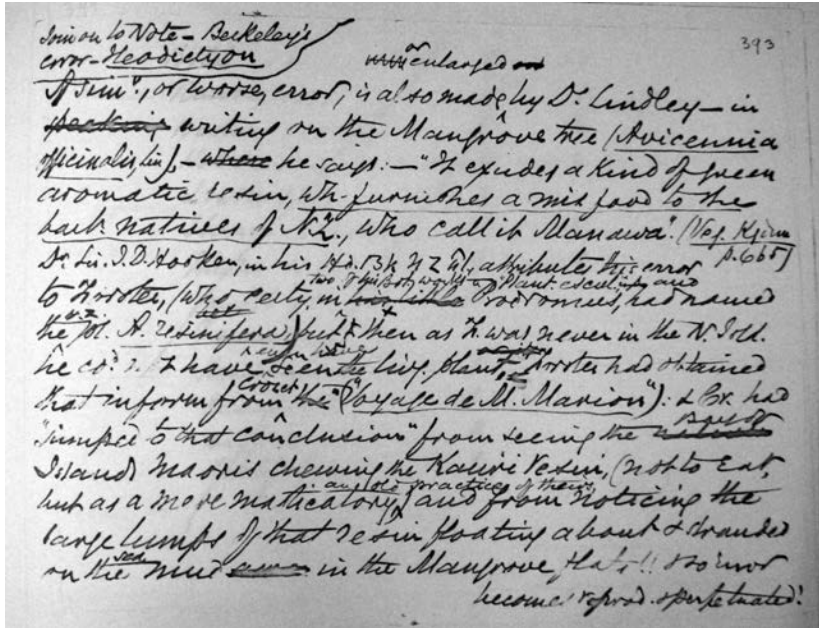 Join on to Note – Berkeley's
error – Ileodictyon
393
or enlarged
A sim^r., or worse, error, is also made by Dr. Lindley – in
writing on the Mangrôve tree (Avicennia
officinalis, Lin), – where he says: – "It exudes a kind of green
aromatic resin, wh. furnishes a mis food to the
natives of N.Z., who call it Manawa". (Veg. Kgdm
p. 665)
Dr. Sir. J.D. Hooker, in his Hd. Bk N Z Fl., attributes this error
two of his Bot. works – Plant. esculentis and
to Forster, (who, certy, in his little Prodromus, had named
the pl. A. resinifera) but then as F. was never in the N. Isld.
never have
he cod. n. have seen the livg. plant, Forster had obtained
Crozet
that inform from the ("Voyage de M. Marion"): & Cr. had
"jumped to that conclusion" from seeing the
Bay of
Islands Maoris chewing the Kauri resin, (not to eat,
an old practice of theirs,
but as a mere masticatory,) and from noticing the
large lumps of that resin floating about & stranded
sea
on the mud in the Mangrove flats!! & so error
becomes reprod. & perpetuated!